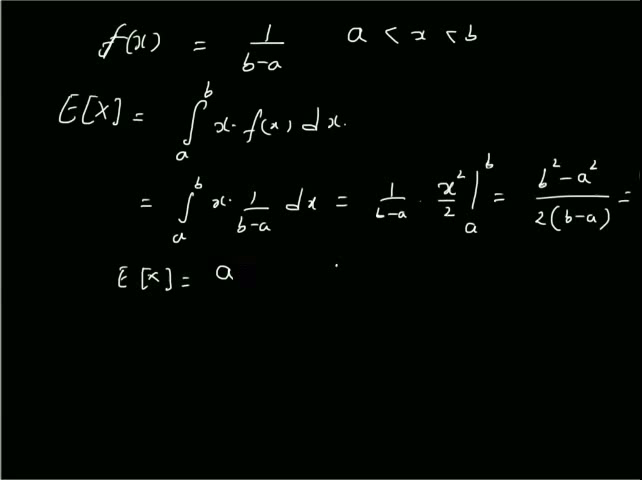 f(x) = 1/(b-a) a < x < b
E[X] = ∫_a^b x. f(x) dx.
= ∫_a^b x. 1/(b-a) dx = 1/(b-a) . x²/2 |_a^b = (b²-a²)/(2(b-a)) =
E[x] = a